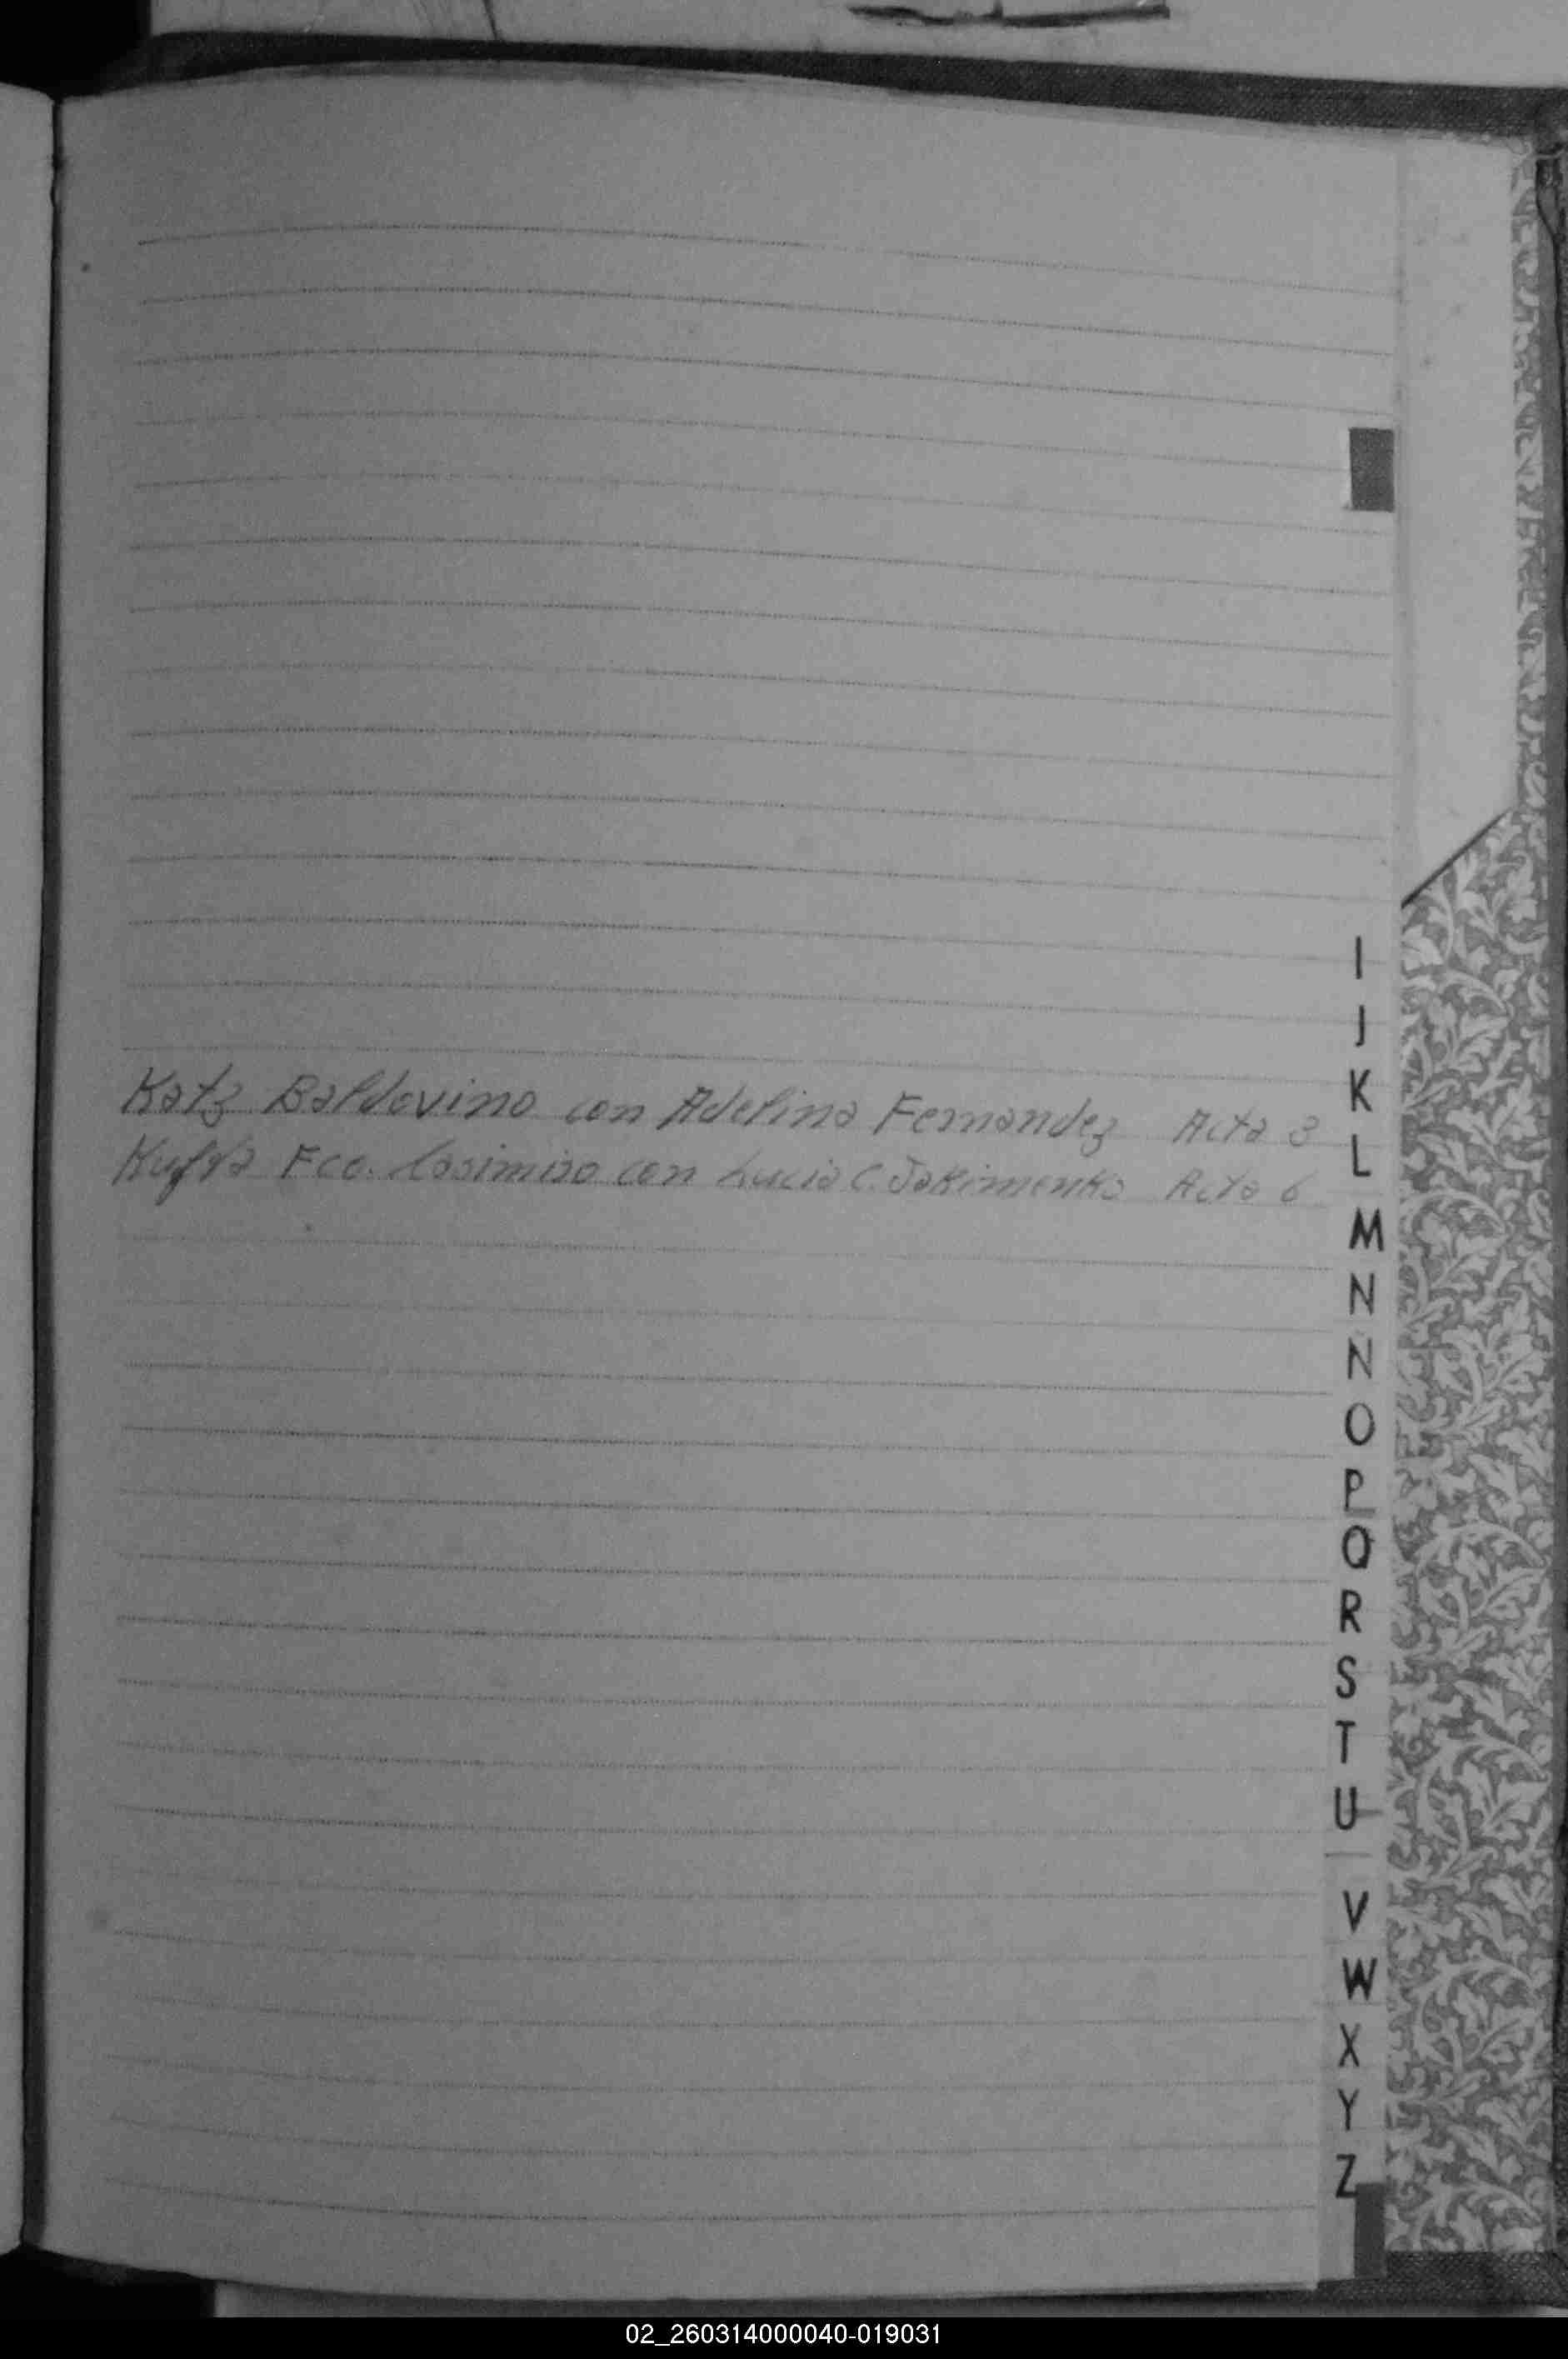 I
J
K
Katz Baldovino con Adelina Fernandez Acta 3
L
Fco. Casimiro con Lucia C. Jakimenko Acta 6
M
N
Ñ
O
P
Q
R
S
T
U
V
W
X
Y
Z
02_260314000040-019031